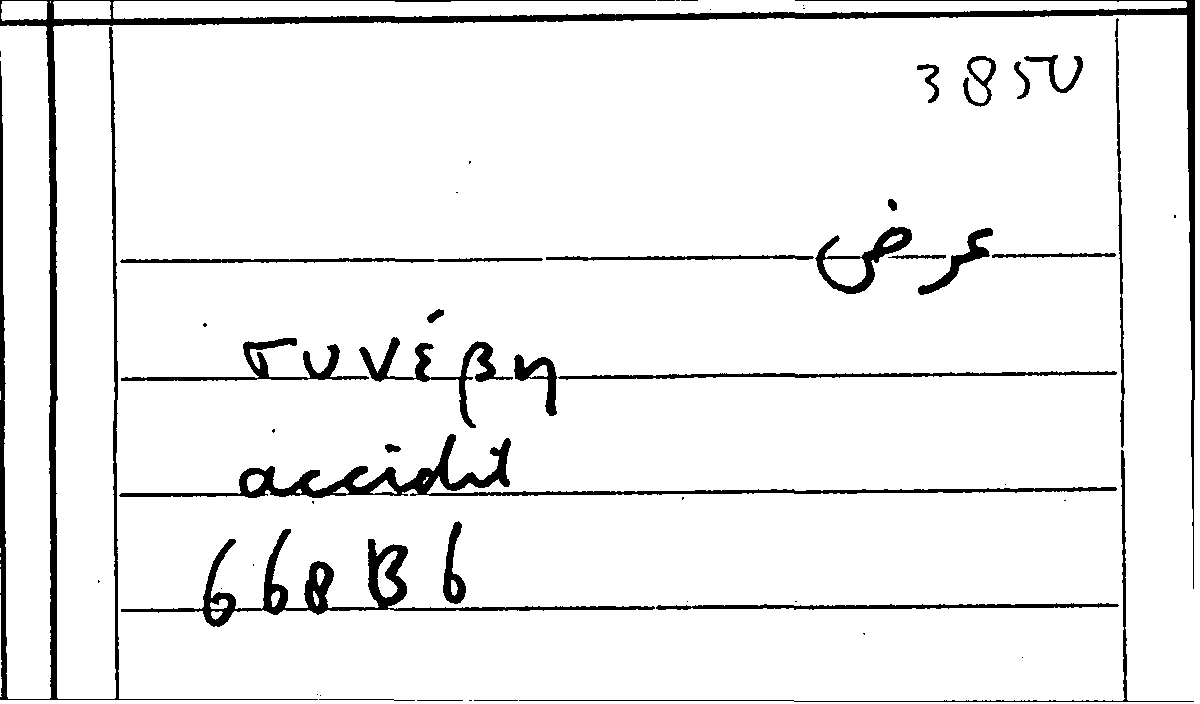 3850
عرض
συνέβη
accidit
668B6